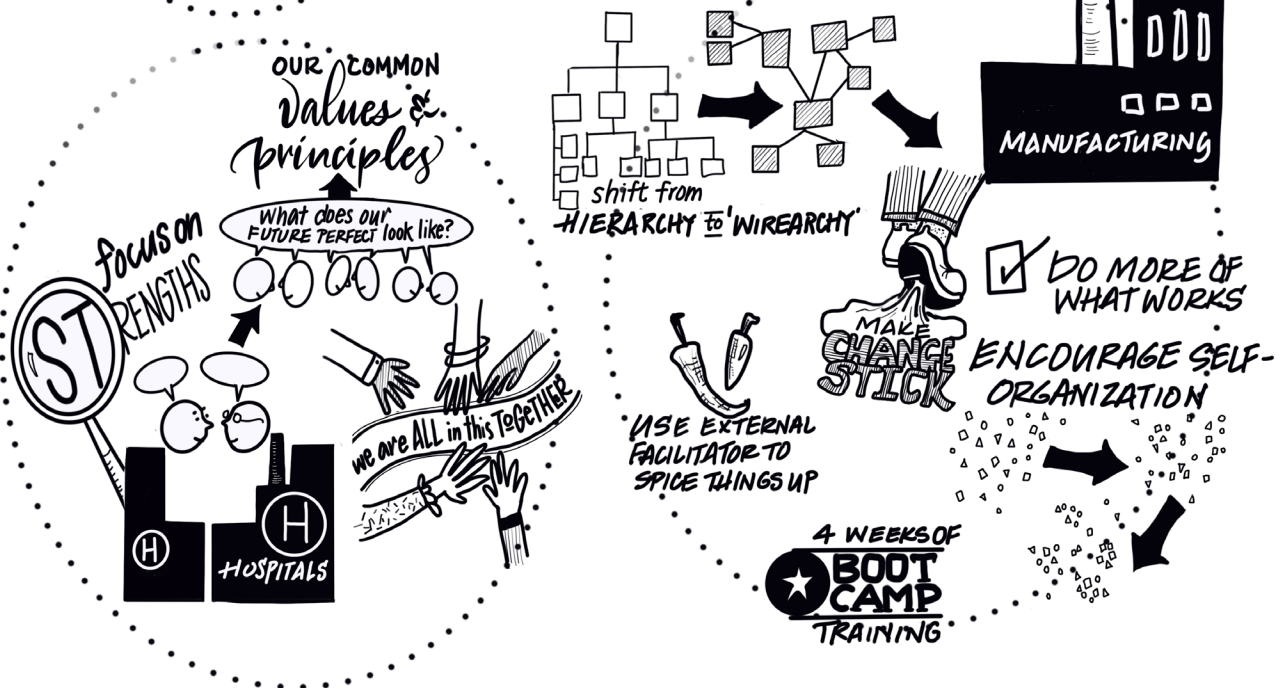 OUR COMMON
values &
principles
What does our
FUTURE PERFECT look like?
focus on
STRENGTHS
we are ALL in this TOGETHER
H
H
HOSPITALS
shift from
HIERARCHY to 'WIREARCHY'
MANUFACTURING
MAKE
CHANGE
STICK
DO MORE OF
WHAT WORKS
ENCOURAGE SELF-
ORGANIZATION
USE EXTERNAL
FACILITATOR TO
SPICE THINGS UP
4 WEEKS OF
BOOT
CAMP
TRAINING